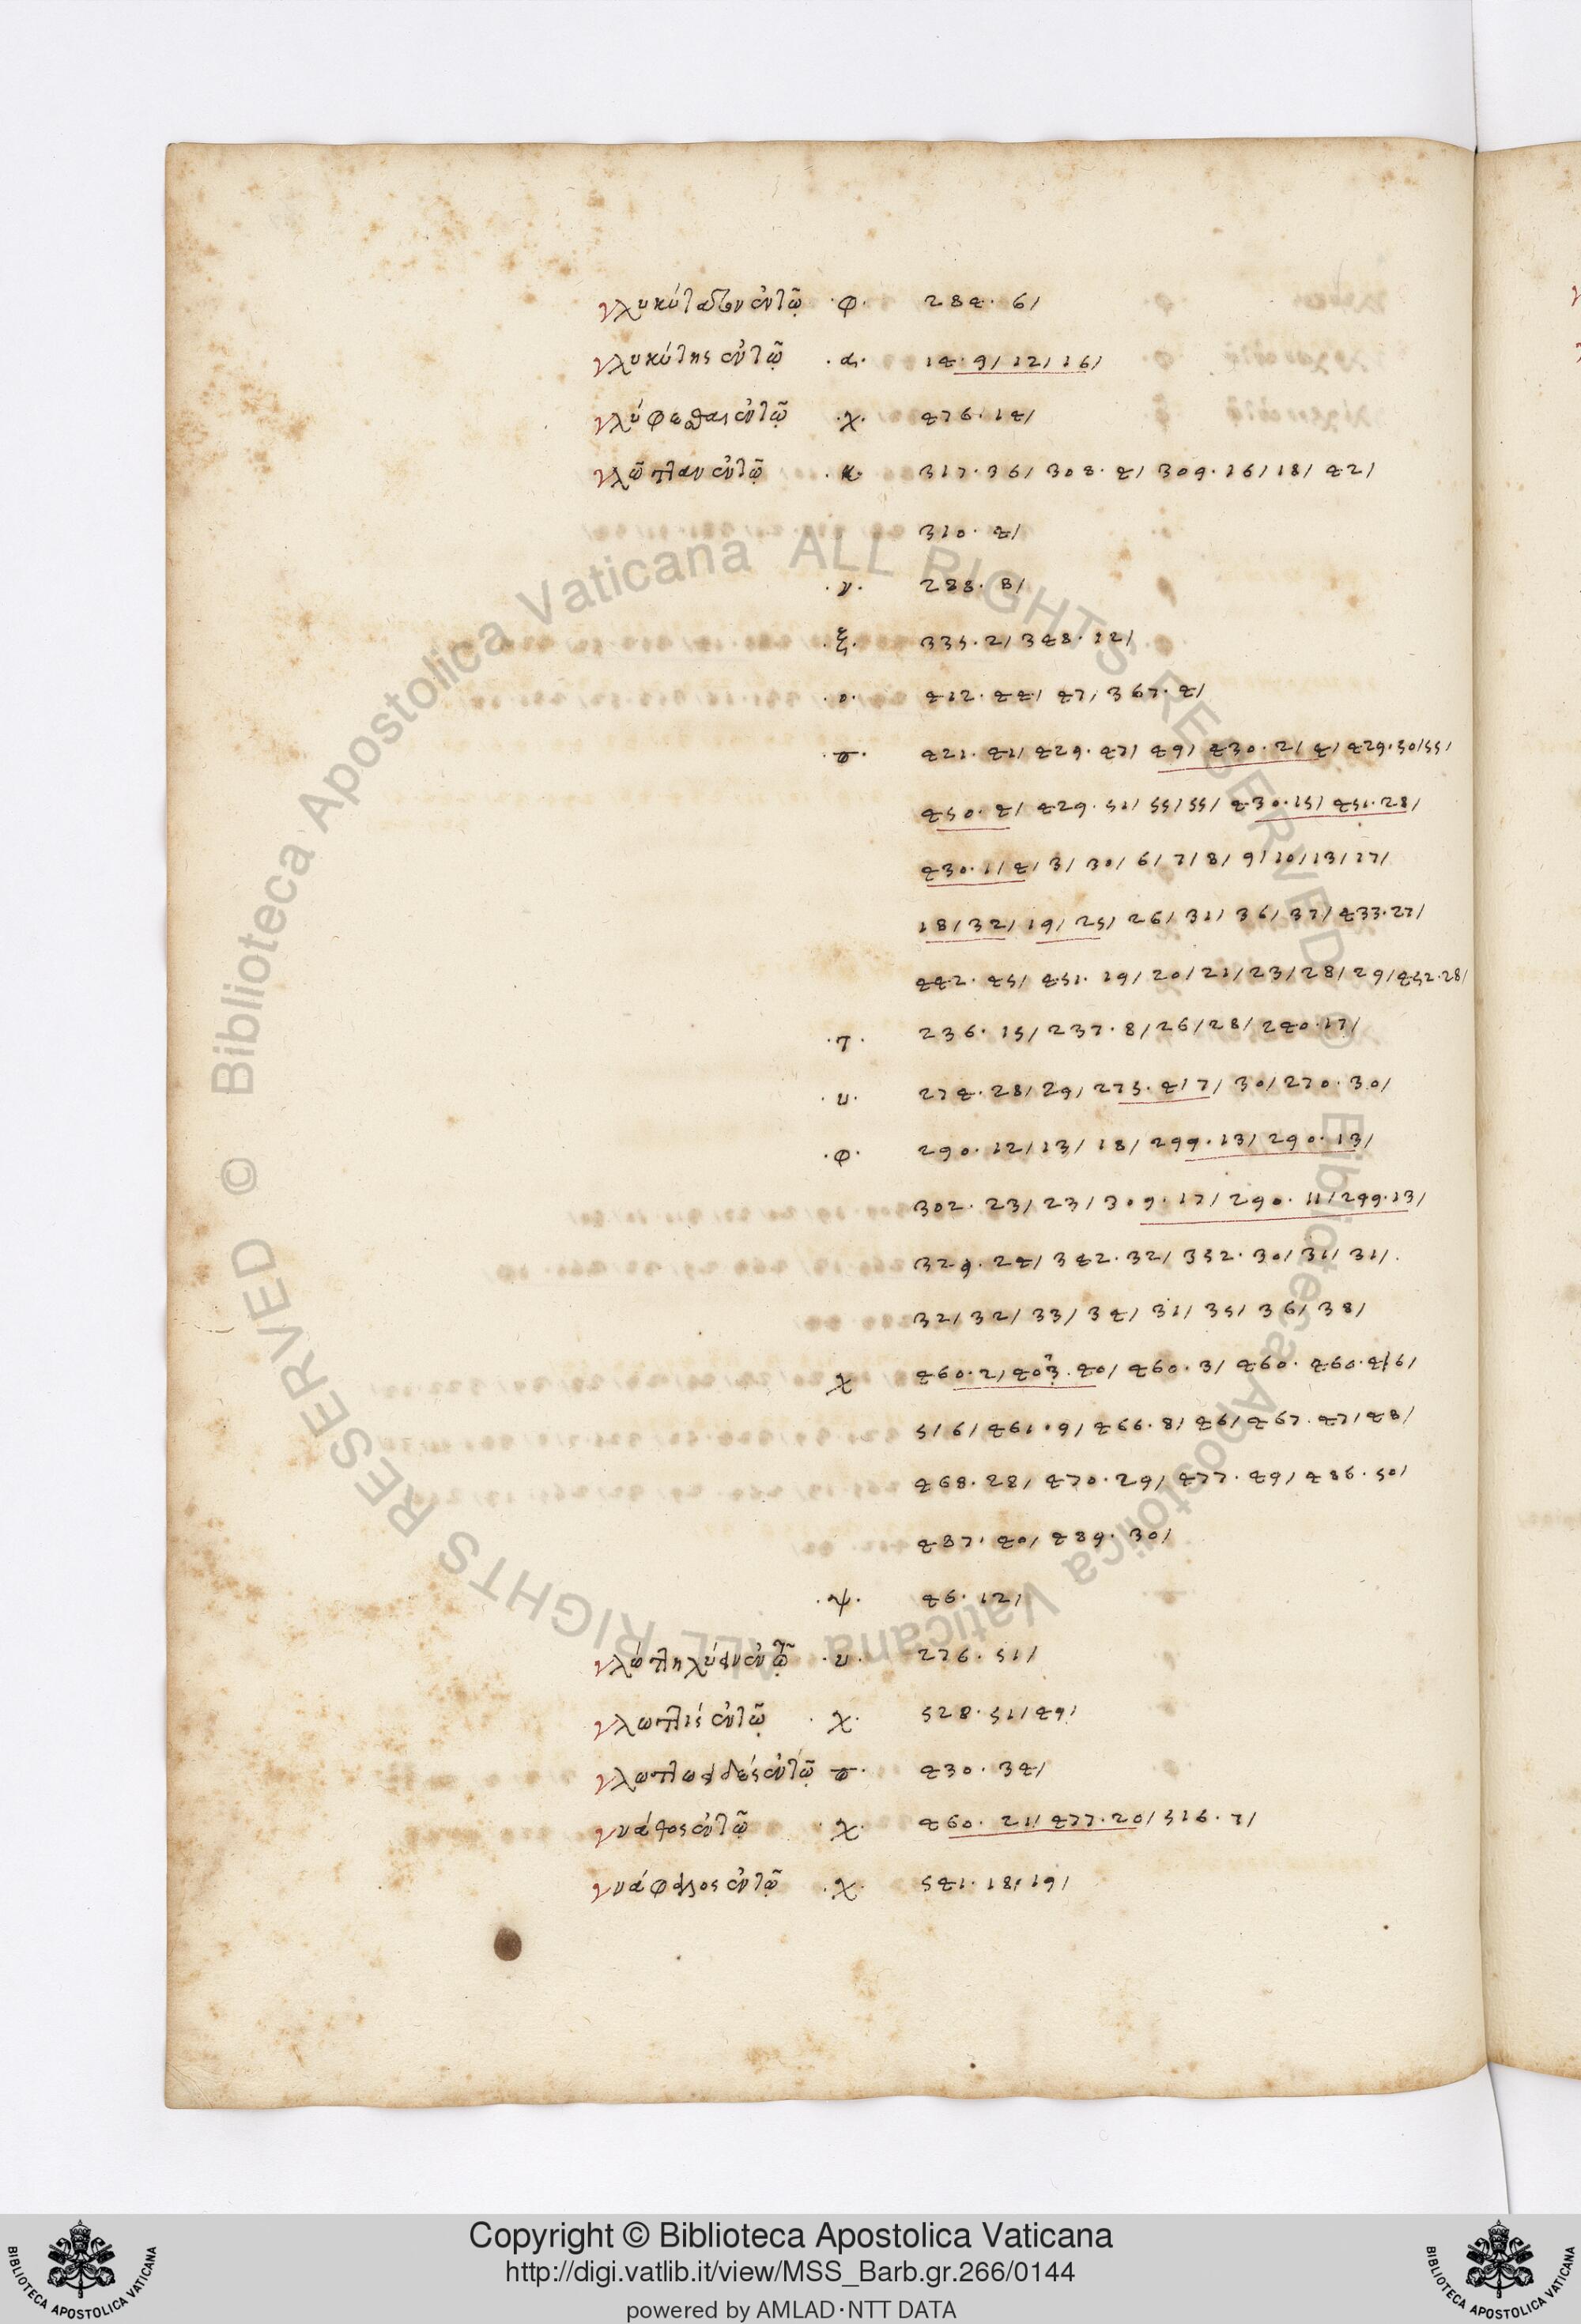 γλυκύτατον ἐν τῷ ·φ· 284. 6/
γλυκύτης ἐν τῷ ·α· 14. 9/ 12/ 16/
γλύφεσθαι ἐν τῷ ·χ· 476. 14/
γλῶτταν ἐν τῷ ·κ· 317. 36/ 308. 4/ 309. 16/ 18/ 42/
310. 4/
·ν· 288. 8/
·ξ· 335. 2/ 348. 12/
·ο· 412. 44/ 47/ 367. 4/
·π· 421. 41/ 429. 47/ 49/ 430. 2/ 4/ 429. 50/ 55/
450. 4/ 429. 51/ 55/ 55/ 430. 15/ 451. 28/
430. 1/ 4/ 3/ 30/ 6/ 7/ 8/ 9/ 10/ 13/ 17/
18/ 32/ 19/ 25/ 26/ 31/ 36/ 37/ 433. 27/
442. 45/ 451. 19/ 20/ 21/ 23/ 28/ 29/ 452. 28/
·τ· 236. 15/ 237. 8/ 26/ 28/ 240. 17/
·υ· 274. 28/ 29/ 275. 4/ 7/ 30/ 270. 30/
·φ· 290. 12/ 13/ 18/ 299. 13/ 290. 13/
302. 23/ 23/ 309. 17/ 290. 11/ 299. 13/
329. 24/ 342. 32/ 352. 30/ 31/ 31/.
32/ 32/ 33/ 34/ 31/ 35/ 36/ 38/
χ 460. 2/ 403. 40/ 460. 3/ 460. 460. 4/ 6/
5/ 6/ 461. 9/ 466. 8/ 46/ 467. 47/ 48/
468. 28/ 470. 29/ 477. 49/ 486. 50/
487. 40/ 489. 30/
·ψ· 46. 12/
ἐν τῷ ·υ· 276. 51/
γλωττὶς ἐν τῷ ·χ· 528. 51/ 49/
γλωττοειδές ἐν τῷ π· 430. 34/
γνάθος ἐν τῷ ·χ· 460. 21/ 477. 20/ 516. 7/
γνάφαλος ἐν τῷ ·χ· 541. 18/ 19/
© Biblioteca Apostolica Vaticana ALL RIGHTS RESERVED © Biblioteca Apostolica Vaticana ALL RIGHTS RESERVED
Copyright © Biblioteca Apostolica Vaticana
http://digi.vatlib.it/view/MSS_Barb.gr.266/0144
powered by AMLAD·NTT DATA
BIBLIOTECA APOSTOLICA VATICANA
BIBLIOTECA APOSTOLICA VATICANA